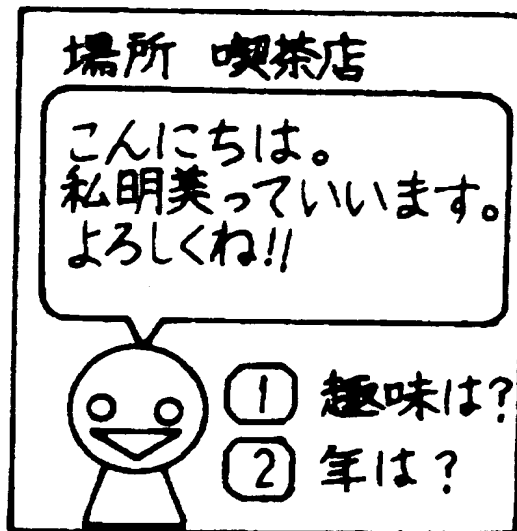 場所 喫茶店
こんにちは。
私明美っていいます。
よろしくね!!
1 趣味は?
2 年は?